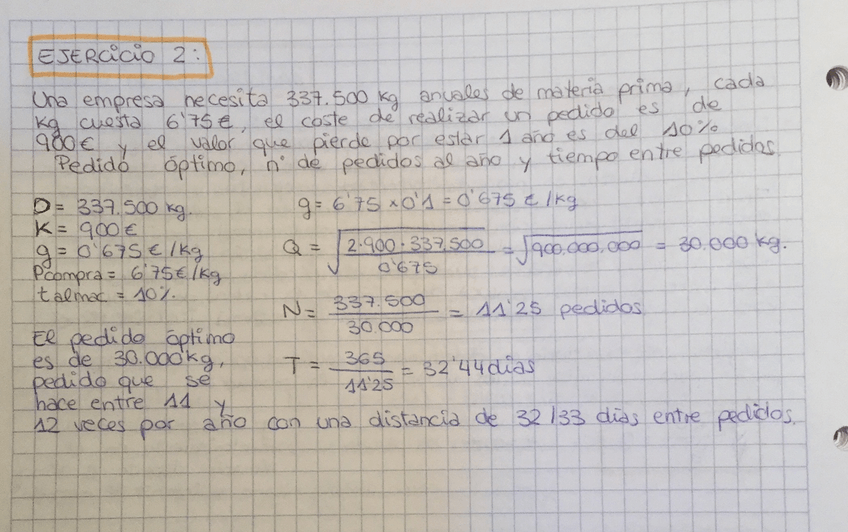 EJERCICIO 2:
Una empresa necesita 337.500 kg anuales de materia prima, cada
kg cuesta 6'75€, el coste de realizar un pedido es de
900€ y el valor que pierde por estar 1 año es del 10%
Pedido óptimo, nº de pedidos al año y tiempo entre pedidos
D = 337.500 kg.
K = 900€
g = 0'675 €/kg
Pcompra = 6'75€/kg
talmac = 10%.
g = 6'75 x 0'1 = 0'675 €/kg
Q = √(2·900·337.500 / 0'675) = √900.000.000 = 30.000 kg.
N = 337.500 / 30.000 = 11'25 pedidos
T = 365 / 11'25 = 32'44 dias
El pedido óptimo
es de 30.000kg,
pedido que se
hace entre 11 y
12 veces por año con una distancia de 32/33 dias entre pedidos.